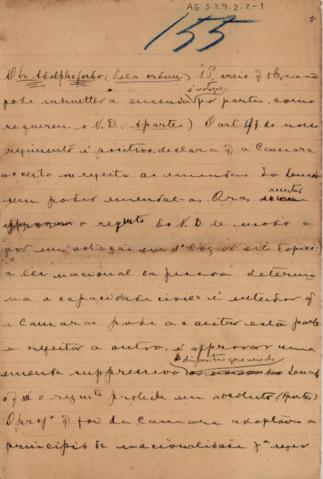 AG 3.2.9.2.2-1
155
O Sr. Adolpho Gordo (Pela ordem) Sr P, creio q o Senado
á votação
pode submetter a emenda por partes, como
requereu o N.D. (Apartes) O art do nosso
regimento é positivo, declara q a Camara
acceita ou rejeita as emendas do Senado
sem poder emendal-as. Ora,
acceitar
o reqto do N.D de modo a
por em votação em 1º logar este topico:
a lei nacional da pessoa determi
na a capacidade civil é entender q
a Camara pode acceitar esta parte
e rejeitar a outra, é approvar uma
dispositivo que veio do
emenda suppressiva Senado
o reqto preterido em absoluto (partes)
O projº q foi da Camara adoptava o
principio da nacionalidade pª reger